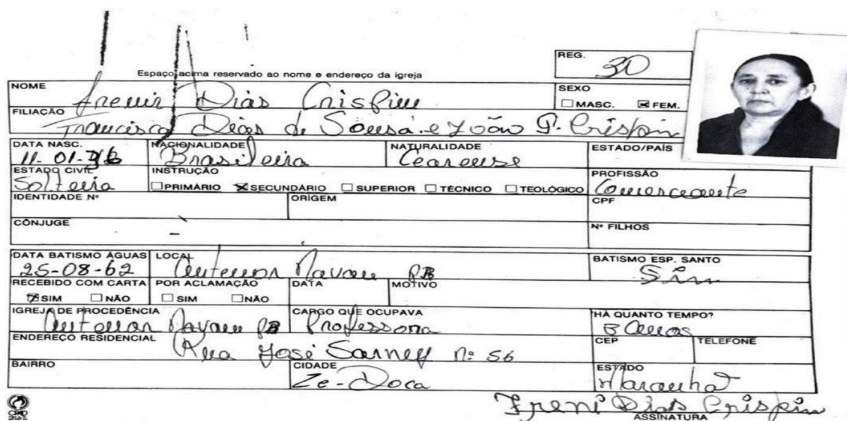 REG. 30
Espaço acima reservado ao nome e endereço da igreja
NOME Irenir Dias Crispim
SEXO MASC. FEM.
FILIAÇÃO Francisca Dias de Sousa e João P. Crispin
DATA NASC. 11-01-36 NACIONALIDADE Brasileira NATURALIDADE Cearense ESTADO/PAÍS
ESTADO CIVIL Solteira INSTRUÇÃO PRIMÁRIO SECUNDÁRIO SUPERIOR TÉCNICO TEOLÓGICO PROFISSÃO Comerciante
IDENTIDADE Nº ORIGEM CPF
CÔNJUGE - Nº FILHOS
DATA BATISMO ÁGUAS 25-08-62 LOCAL Antenor Navarro PB BATISMO ESP. SANTO Sim
RECEBIDO COM CARTA SIM NÃO POR ACLAMAÇÃO SIM NÃO DATA MOTIVO
IGREJA DE PROCEDÊNCIA Antenor Navarro PB CARGO QUE OCUPAVA Professora HÁ QUANTO TEMPO? Anos
ENDEREÇO RESIDENCIAL Rua José Sarney Nº 56 CEP TELEFONE
BAIRRO CIDADE Ze-Doca ESTADO Maranhão
Ireni Dias Crispin
ASSINATURA